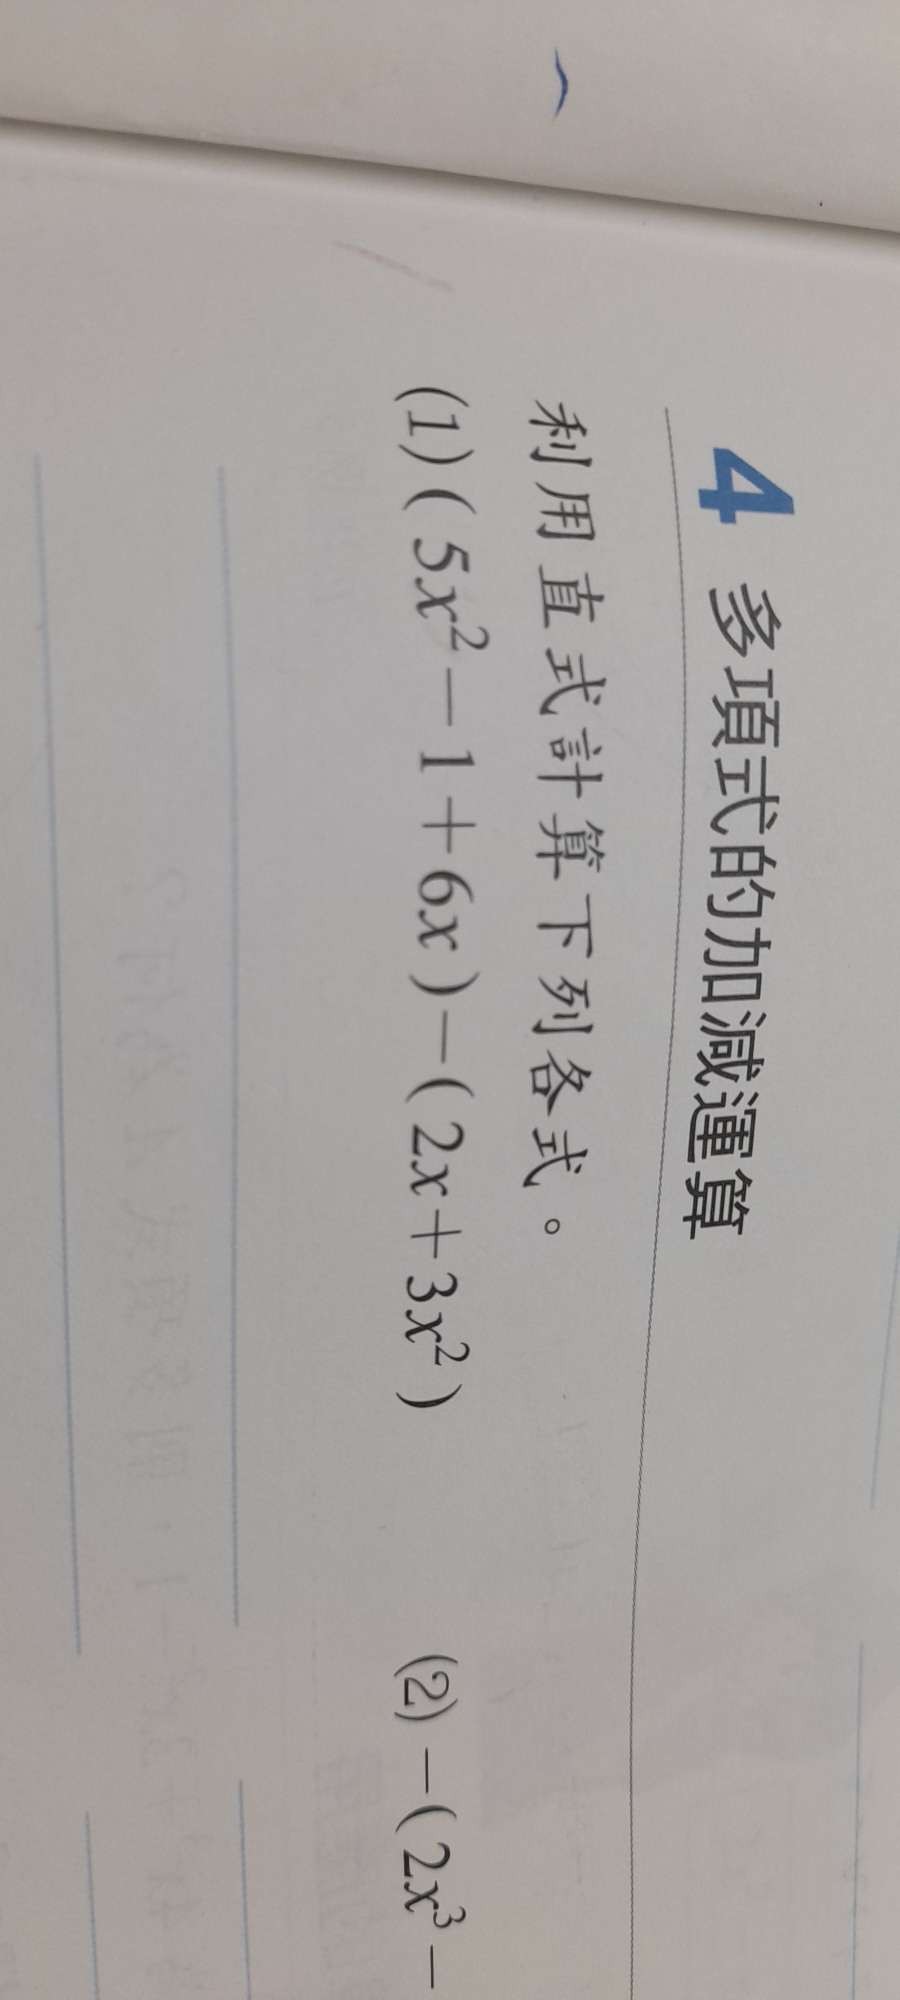 4 多項式的加減運算
利用直式計算下列各式。
(1) ( 5x² − 1 + 6x ) − ( 2x + 3x² )
(2) − ( 2x³ −